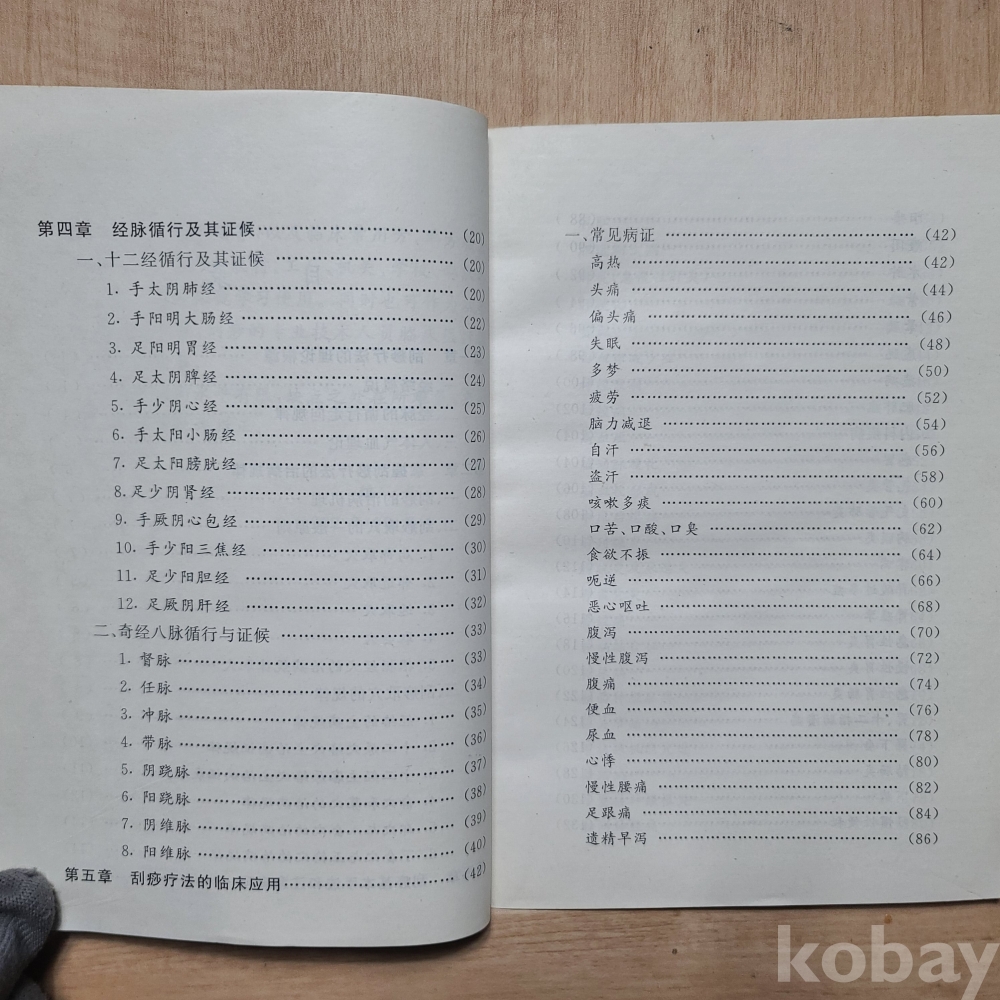 第四章 经脉循行及其证候……………………………(20)
一、十二经循行及其证候 ……………………………(20)
1. 手太阴肺经 ……………………………(20)
2. 手阳明大肠经 ……………………………(22)
3. 足阳明胃经 ……………………………(23)
4. 足太阴脾经 ……………………………(24)
5. 手少阴心经 ……………………………(25)
6. 手太阳小肠经 ……………………………(26)
7. 足太阳膀胱经 ……………………………(27)
8. 足少阴肾经 ……………………………(28)
9. 手厥阴心包经 ……………………………(29)
10. 手少阳三焦经 ……………………………(30)
11. 足少阳胆经 ……………………………(31)
12. 足厥阴肝经 ……………………………(32)
二、奇经八脉循行与证候 ……………………………(33)
1. 督脉 ……………………………(33)
2. 任脉 ……………………………(34)
3. 冲脉 ……………………………(35)
4. 带脉 ……………………………(36)
5. 阴跷脉 ……………………………(37)
6. 阳跷脉 ……………………………(38)
7. 阴维脉 ……………………………(39)
8. 阳维脉 ……………………………(40)
第五章 刮痧疗法的临床应用……………………………(42)
一、常见病证 ……………………………(42)
高热 ……………………………(42)
头痛 ……………………………(44)
偏头痛 ……………………………(46)
失眠 ……………………………(48)
多梦 ……………………………(50)
疲劳 ……………………………(52)
脑力减退 ……………………………(54)
自汗 ……………………………(56)
盗汗 ……………………………(58)
咳嗽多痰 ……………………………(60)
口苦、口酸、口臭 ……………………………(62)
食欲不振 ……………………………(64)
呃逆 ……………………………(66)
恶心呕吐 ……………………………(68)
腹泻 ……………………………(70)
慢性腹泻 ……………………………(72)
腹痛 ……………………………(74)
便血 ……………………………(76)
尿血 ……………………………(78)
心悸 ……………………………(80)
慢性腰痛 ……………………………(82)
足跟痛 ……………………………(84)
遗精早泻 ……………………………(86)
kobay